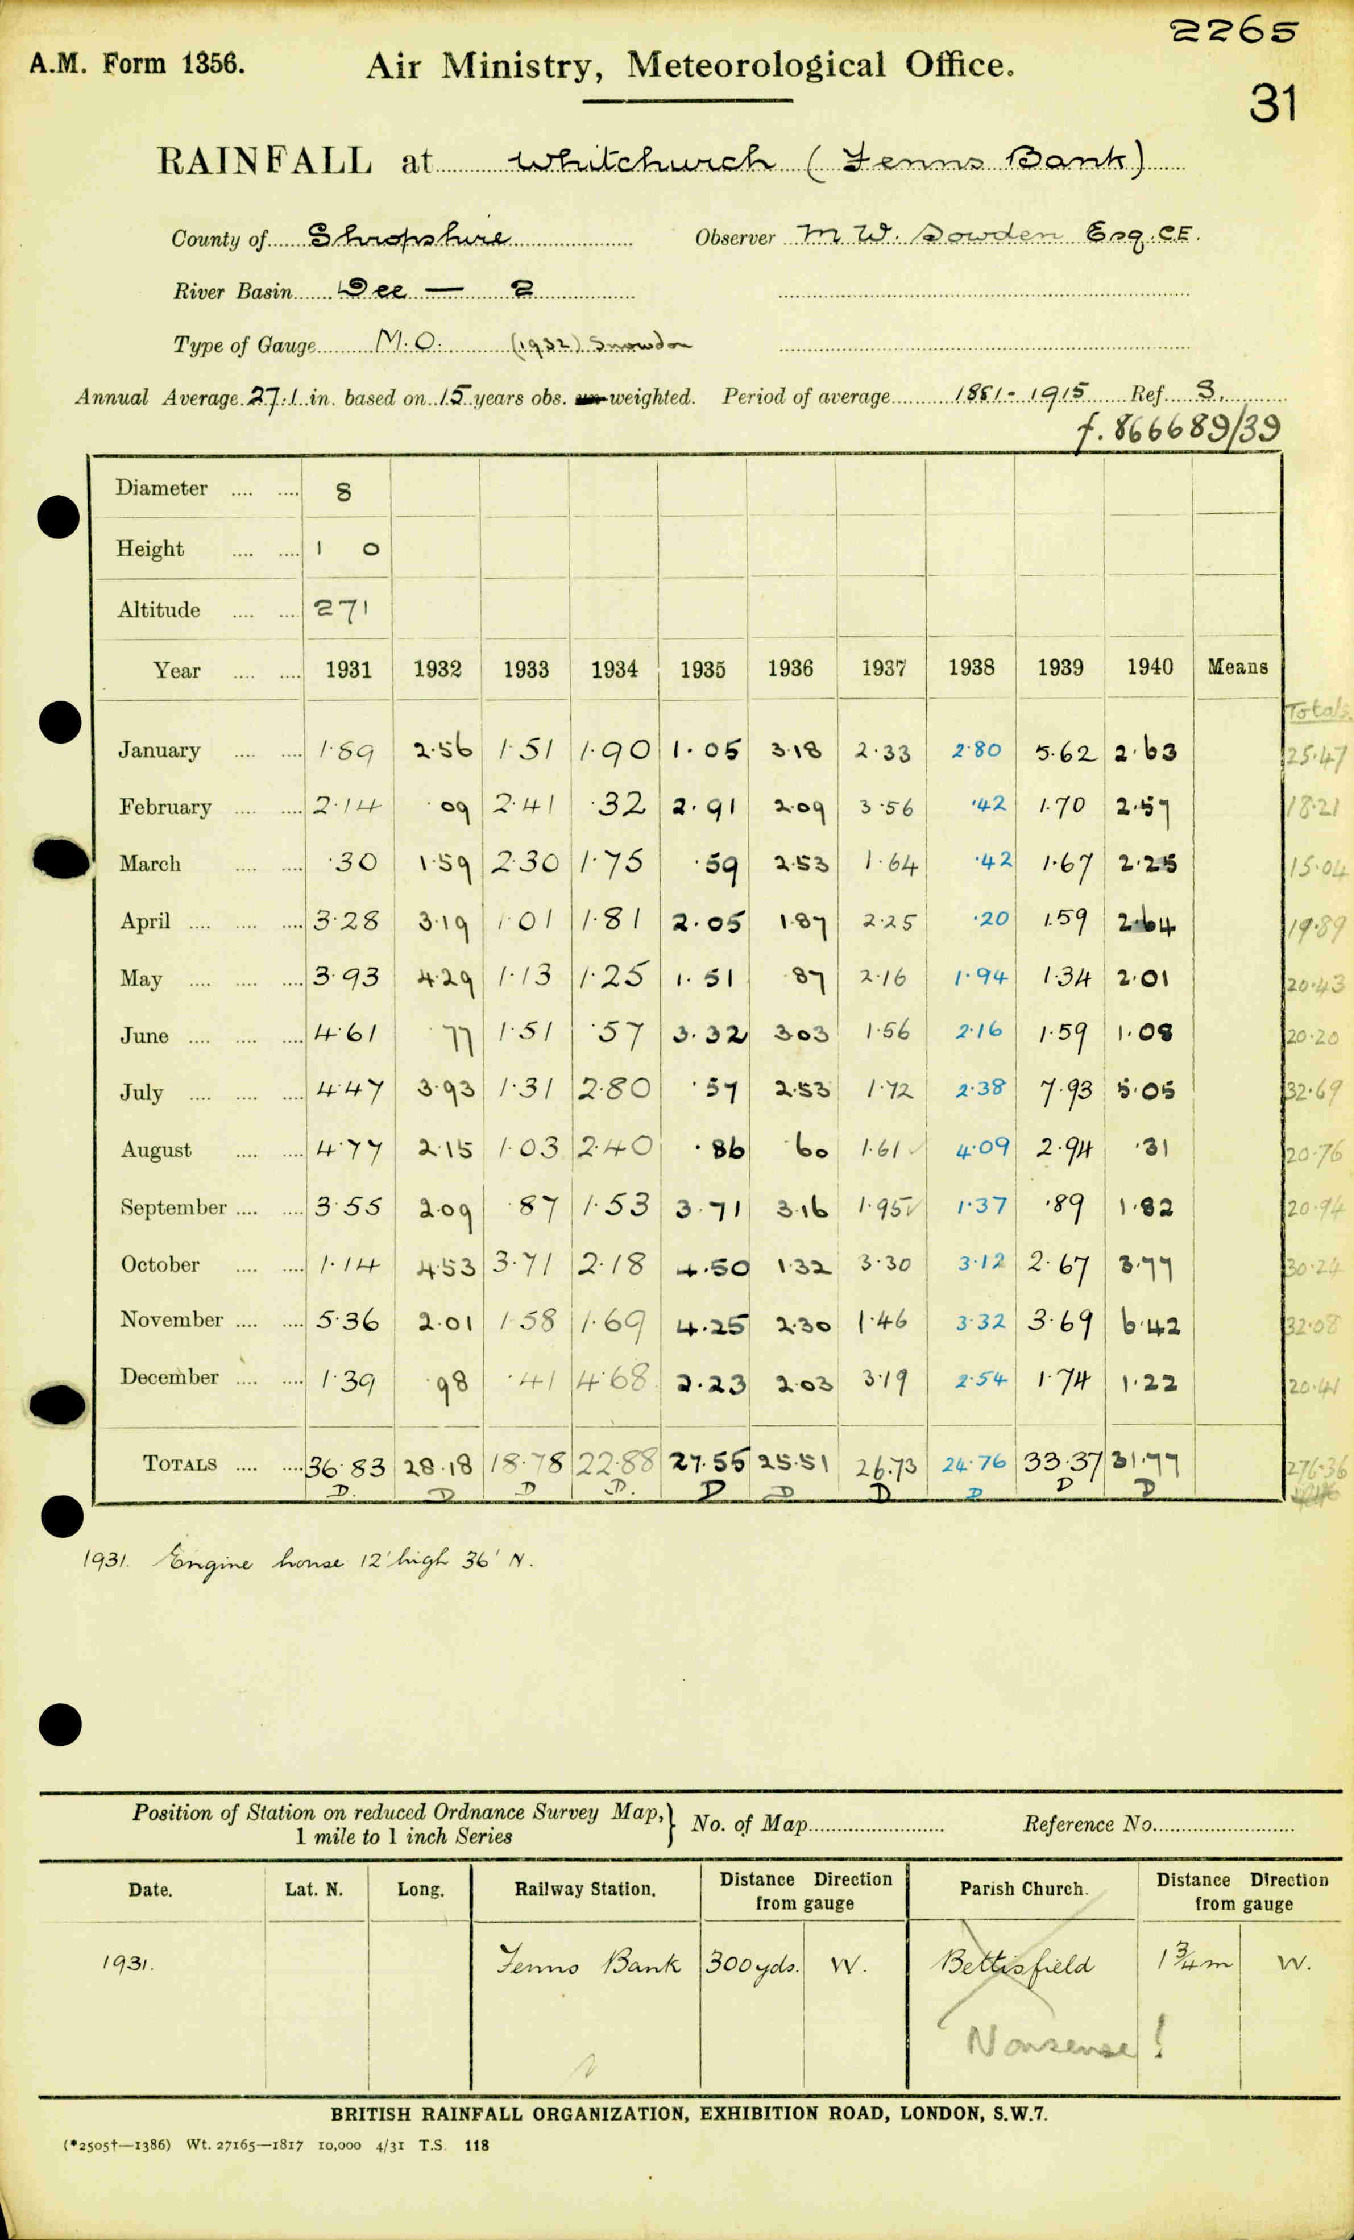 2265
A.M. Form 1356. Air Ministry, Meteorological Office.
31
RAINFALL at Whitchurch (Fenns Bank)
County of Shropshire Observer M W. Sowden Esq. C.E.
River Basin Dee — 2
Type of Gauge M.O. (1932) Snowdon
Annual Average 27.1 in. based on 15 years obs. un weighted. Period of average 1881-1915 Ref. S.
f. 866689/39
Diameter 8
Height 1 0
Altitude 271
Year 1931 1932 1933 1934 1935 1936 1937 1938 1939 1940 Means
Totals.
January 1.89 2.56 1.51 1.90 1.05 3.18 2.33 2.80 5.62 2.63 25.47
February 2.14 .09 2.41 .32 2.91 2.09 3.56 .42 1.70 2.57 18.21
March .30 1.59 2.30 1.75 .59 2.53 1.64 .42 1.67 2.25 15.04
April 3.28 3.19 1.01 1.81 2.05 1.87 2.25 .20 1.59 2.64 19.89
May 3.93 4.29 1.13 1.25 1.51 .87 2.16 1.94 1.34 2.01 20.43
June 4.61 .77 1.51 .57 3.32 3.03 1.56 2.16 1.59 1.08 20.20
July 4.47 3.93 1.31 2.80 .57 2.53 1.72 2.38 7.93 5.05 32.69
August 4.77 2.15 1.03 2.40 .86 .60 1.61 ✓ 4.09 2.94 .31 20.76
September 3.55 2.09 .87 1.53 3.71 3.16 1.95 ✓ 1.37 .89 1.82 20.94
October 1.14 4.53 3.71 2.18 4.50 1.32 3.30 3.12 2.67 3.77 30.24
November 5.36 2.01 1.58 1.69 4.25 2.30 1.46 3.32 3.69 6.42 32.08
December 1.39 .98 .41 4.68 2.23 2.03 3.19 2.54 1.74 1.22 20.41
TOTALS 36.83 28.18 18.78 22.88 27.55 25.51 26.73 24.76 33.37 31.77 276.36
D. D D D. D D D D D D
1931. Engine house 12' high 36' N.
Position of Station on reduced Ordnance Survey Map, 1 mile to 1 inch Series } No. of Map Reference No.
Date. Lat. N. Long. Railway Station. Distance Direction from gauge Parish Church. Distance Direction from gauge
1931. Fenns Bank 300 yds. W. Bettisfield 1¾ m W.
Nonsense!
BRITISH RAINFALL ORGANIZATION, EXHIBITION ROAD, LONDON, S.W.7.
(*2505†—1386) Wt. 27165—1817 10,000 4/31 T.S. 118